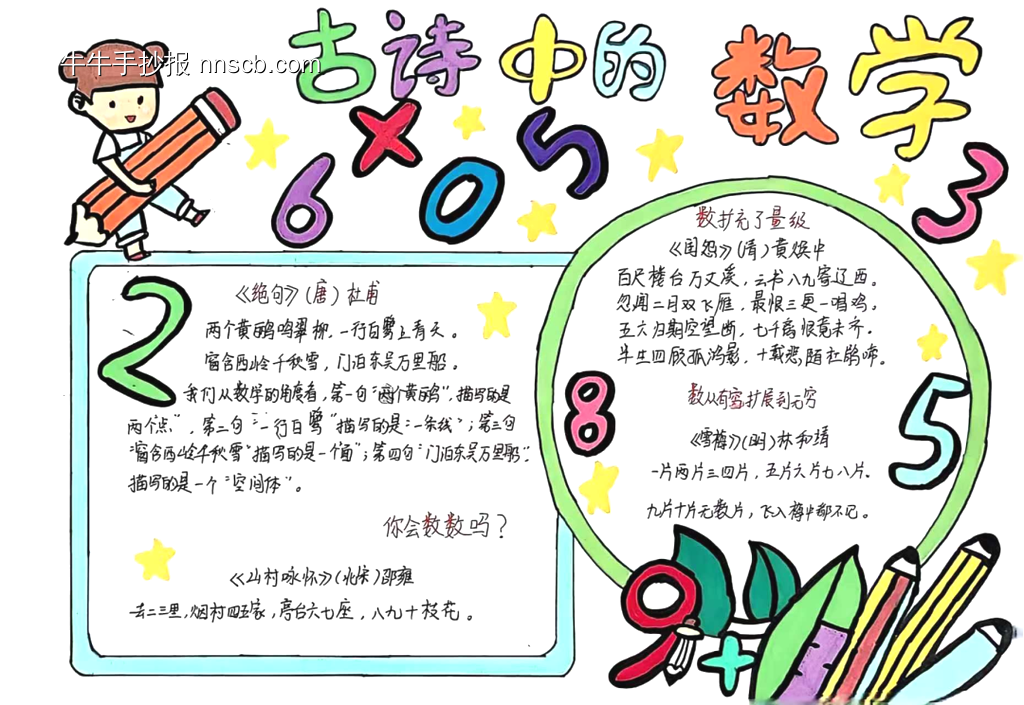 牛牛手抄报 nnscb.com
古诗中的数学
6×05
3
2
《绝句》（唐）杜甫
两个黄鹂鸣翠柳，一行白鹭上青天。
窗含西岭千秋雪，门泊东吴万里船。
我们从数学的角度看，第一句“两个黄鹂”，描写的是
两个点”，第二句“一行白鹭”描写的是：一条线”；第三句
“窗含西岭千秋雪”描写的是一个面”；第四句“门泊东吴万里船”
描写的是一个“空间体”。
你会数数吗？
《山村咏怀》（北宋）邵雍
一去二三里，烟村四五家，亭台六七座，八九十枝花。
数扩充了量级
《闺怨》（清）黄焕中
百尺楼台万丈溪，云书八九寄辽西。
忽闻二月双飞雁，最恨三更一唱鸡。
五六归期空望断，七千离恨竟未齐。
半生四顾孤鸿影，十载悲随杜鹃啼。
数从有穷扩展到无穷
《雪梅》（明）林和靖
一片两片三四片，五片六片七八片。
九片十片无数片，飞入梅中都不见。
8
5
9+